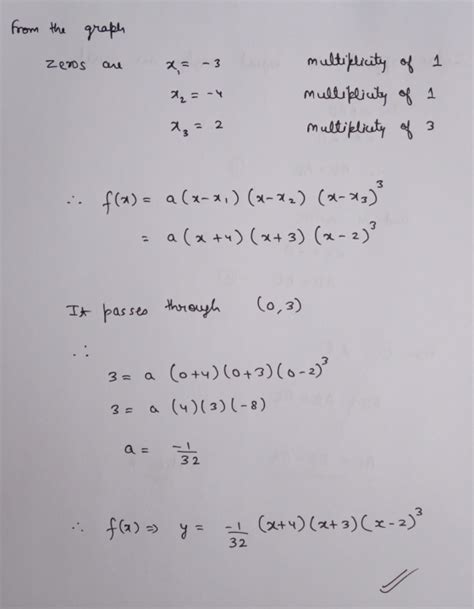 From the graph
zeros are x₁ = -3 multiplicity of 1
x₂ = -4 multiplicity of 1
x₃ = 2 multiplicity of 3
∴ f(x) = a(x-x₁) (x-x₂) (x-x₃)³
= a(x+4) (x+3) (x-2)³
It passes through (0,3)
∴
3 = a (0+4)(0+3)(0-2)³
3 = a (4)(3)(-8)
a = -1/32
∴ f(x) ⇒ y = -1/32 (x+4)(x+3)(x-2)³